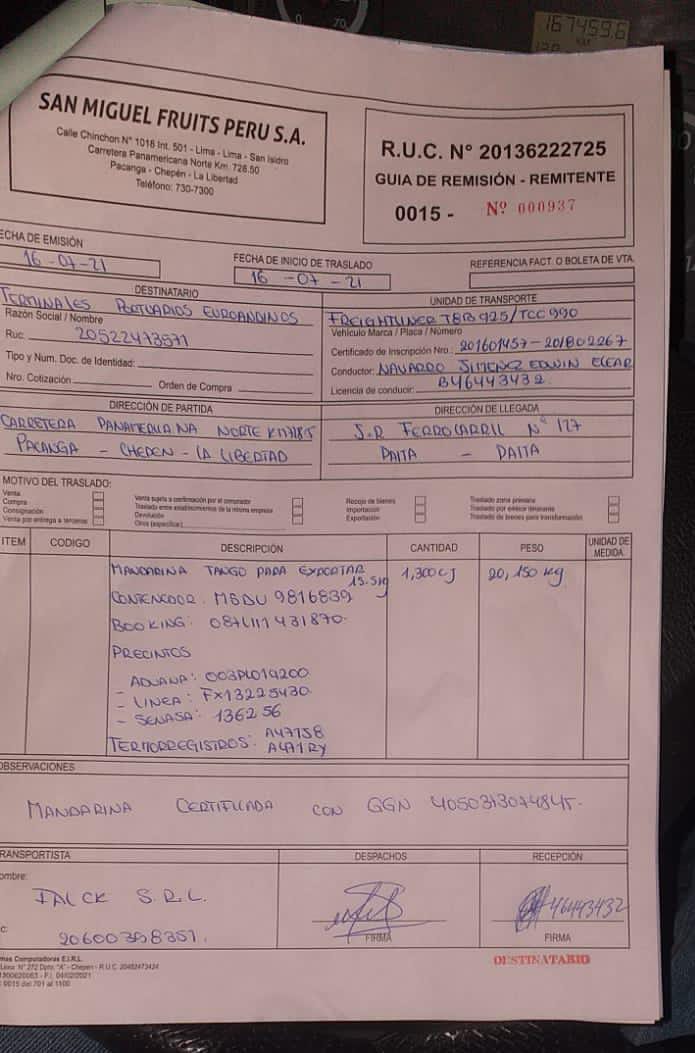 167459.6
70
0
SAN MIGUEL FRUITS PERU S.A.
Calle Chinchon N° 1018 Int. 501 - Lima - Lima - San Isidro
Carretera Panamericana Norte Km. 728.50
Pacanga - Chepén - La Libertad
Teléfono: 730-7300
R.U.C. N° 20136222725
GUIA DE REMISIÓN - REMITENTE
0015 - Nº 000937
ECHA DE EMISIÓN
16 - 07 - 21
FECHA DE INICIO DE TRASLADO
16 - 07 - 21
REFERENCIA FACT. O BOLETA DE VTA.
DESTINATARIO
TERMINALES PORTUARIOS EUROANDINOS
Razón Social / Nombre
Ruc: 20522473571
Tipo y Num. Doc. de Identidad:
Nro. Cotización Orden de Compra
UNIDAD DE TRANSPORTE
FREIGHTLINER T8B925/TCC990
Vehículo Marca / Placa / Número
Certificado de Inscripción Nro.: 201601457-201802267
Conductor: NAVARRO JIMENEZ EDWIN ELEAR
Licencia de conducir: B46443432
DIRECCIÓN DE PARTIDA
CARRETERA PANAMERICANA NORTE
PACANGA - CHEPEN - LA LIBERTAD
DIRECCIÓN DE LLEGADA
J.R FERROCARRIL N° 127
PAITA - PAITA
MOTIVO DEL TRASLADO:
Venta
Compra
Consignación
Venta por entrega a terceros
Venta sujeta a confirmación por el comprador
Traslado entre establecimientos de la misma empresa
Devolución
Otros (especificar)
Recojo de bienes
Importación
Exportación
Traslado zona primaria
Traslado por emisor itinerante
Traslado de bienes para transformación
ITEM CODIGO DESCRIPCIÓN CANTIDAD PESO UNIDAD DE MEDIDA
MANDARINA TANGO PARA EXPORTAR 1,300 CJ 20,150 kg
15.5kg
CONTENEDOR: MSDU 9816839
BOOKING: 087LM1431870
PRECINTOS
ADUANA: 003PL019200
- LINEA: FX13225430
- SENASA: 136256
TERMORREGISTROS: A4771S8
A4771RY
OBSERVACIONES
MANDARINA CERTIFICADA CON GGN 4050373074845.
TRANSPORTISTA
ombre:
FALCK S.R.L.
c: 20600398351.
DESPACHOS
FIRMA
RECEPCIÓN
46443432
FIRMA
DESTINATARIO
mas Computadoras E.I.R.L.
Lima N° 272 Dpto. "A" - Chepen - R.U.C. 20482473424
- F.I. 04/02/2021
0015 del 701 al 1100